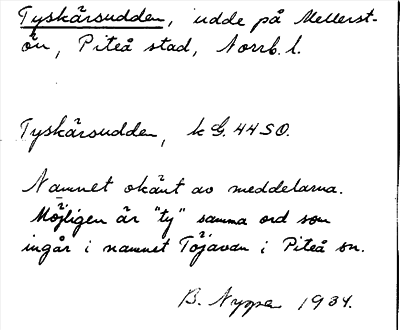 Tyskärsudden, udde på Mellerst-
ön, Piteå stad, Norrb. l.
Tyskärsudden, k G. 44 SO.
Namnet okänt av meddelarna.
Möjligen är "ty" samma ord som
ingår i namnet Töjavan i Piteå sn.
B. Nyppe 1934.